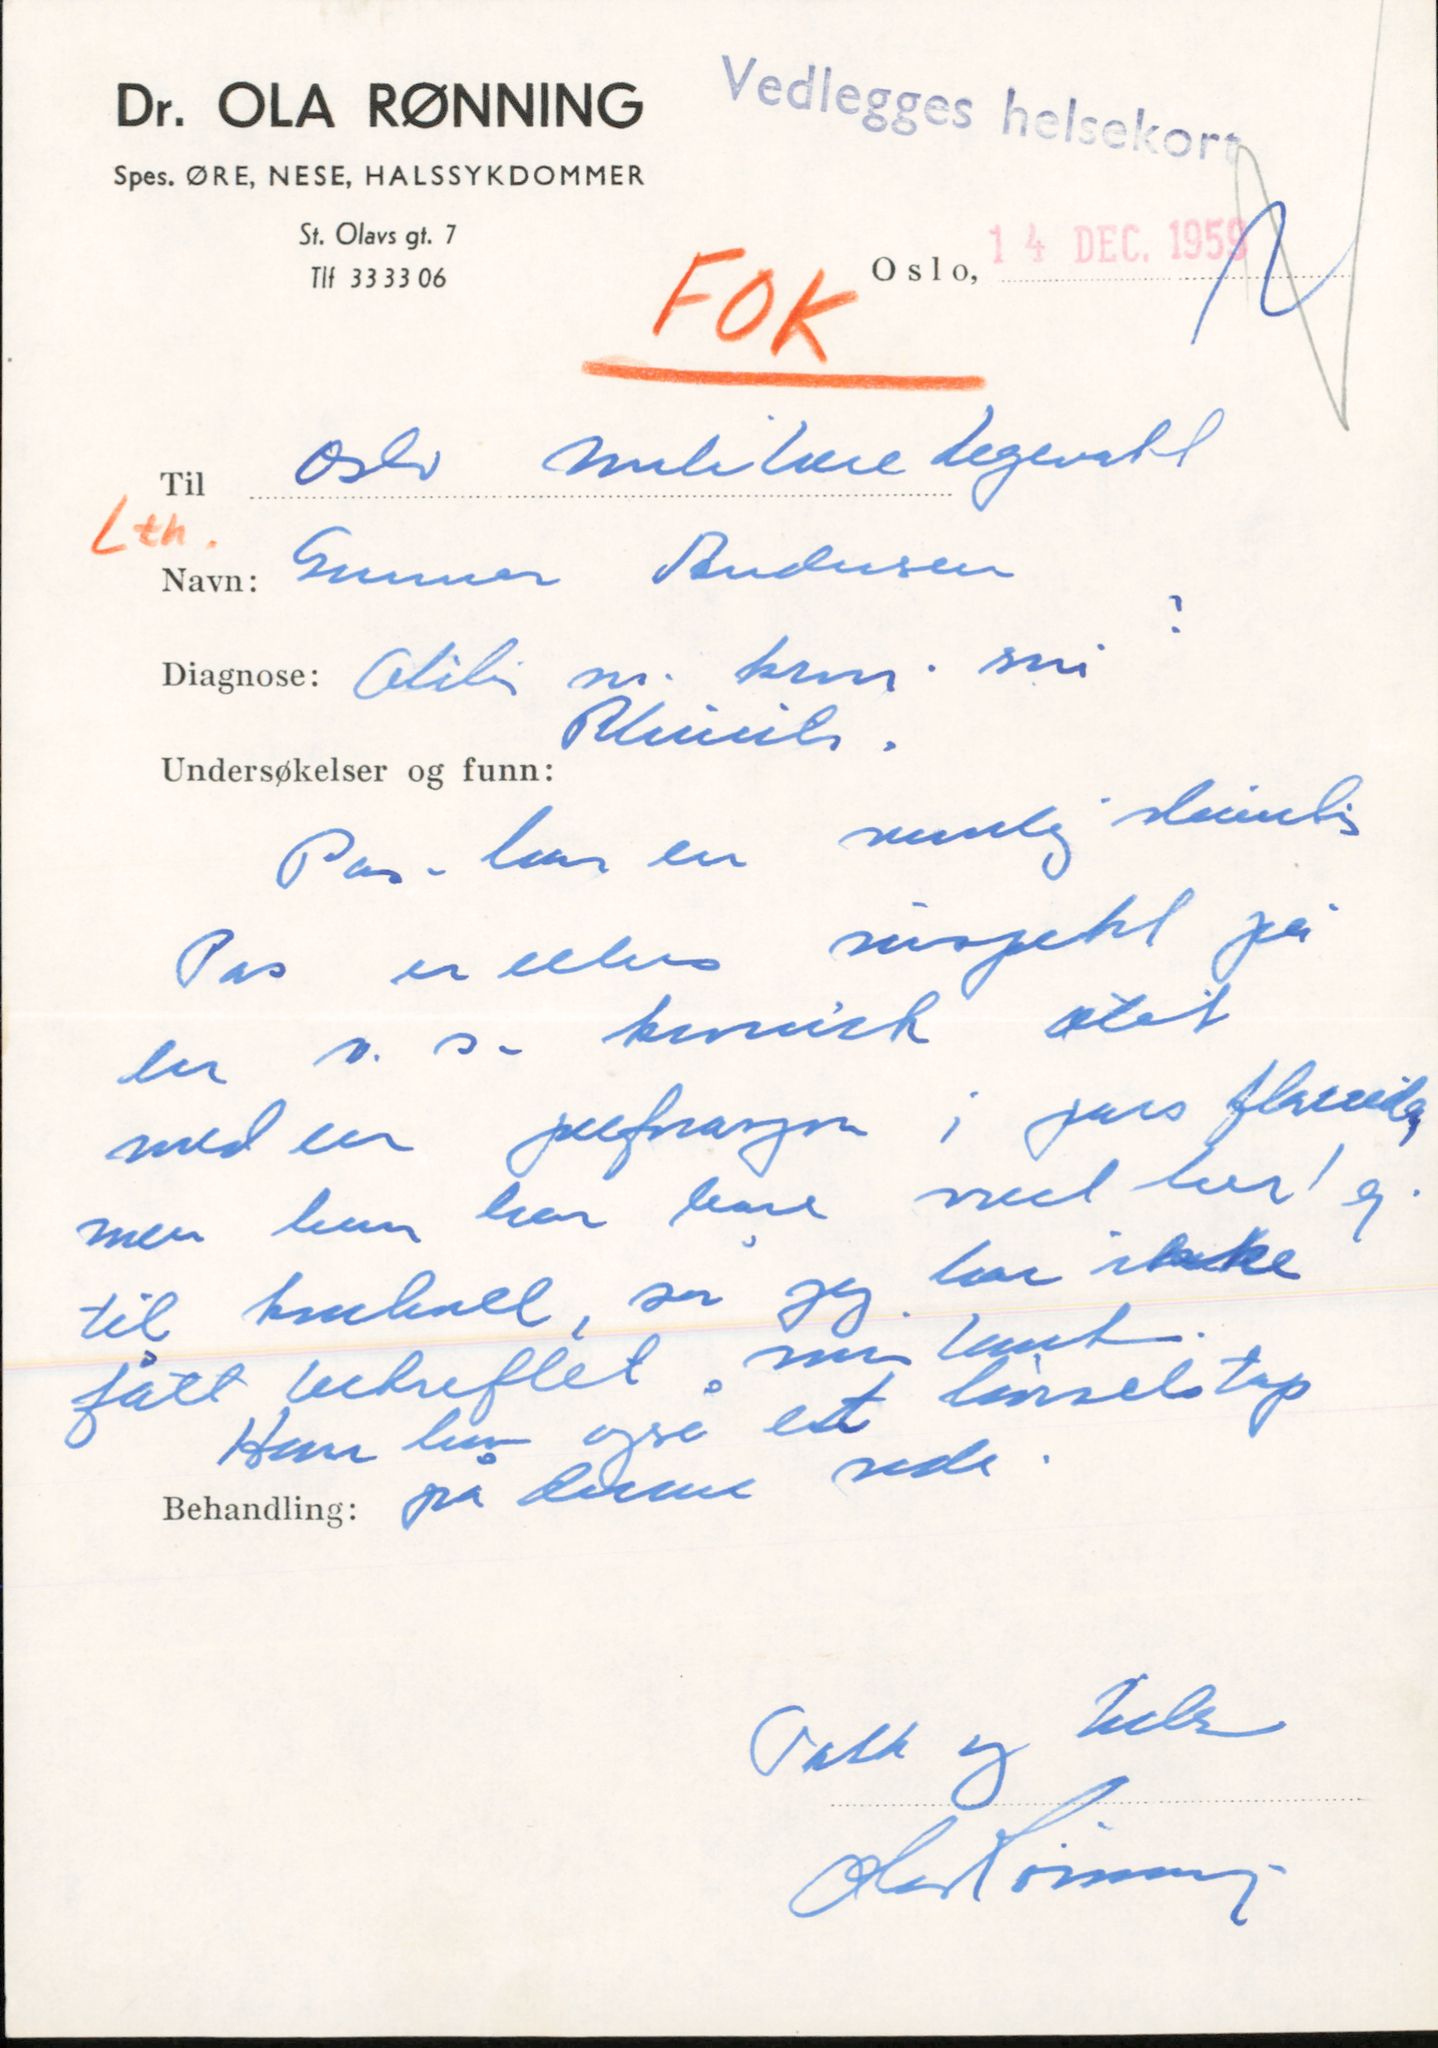 Dr. OLA RØNNING
Spes. ØRE, NESE, HALSSYKDOMMER
St. Olavs gt. 7
Tlf 33 33 06
Vedlegges helsekort
Oslo, 14 DEC. 1959
FOK
Til Oslo militære legevakt
Lth.
Navn: Gunnar Andersen
Diagnose: Otitis m. kron. sin ?
Rhinitis.
Undersøkelser og funn:
Pas. har en rhinitis
Pas er ellers suspekt på
en v. s. kronisk otit
med en perforasjon i pars flaccida,
men han har bare vært her 1 g.
til kontroll, så jeg har ikke
fått bekreftet min
Han har også et hørselstap
på denne side.
Behandling:
Takk og hils
Ola Rønning